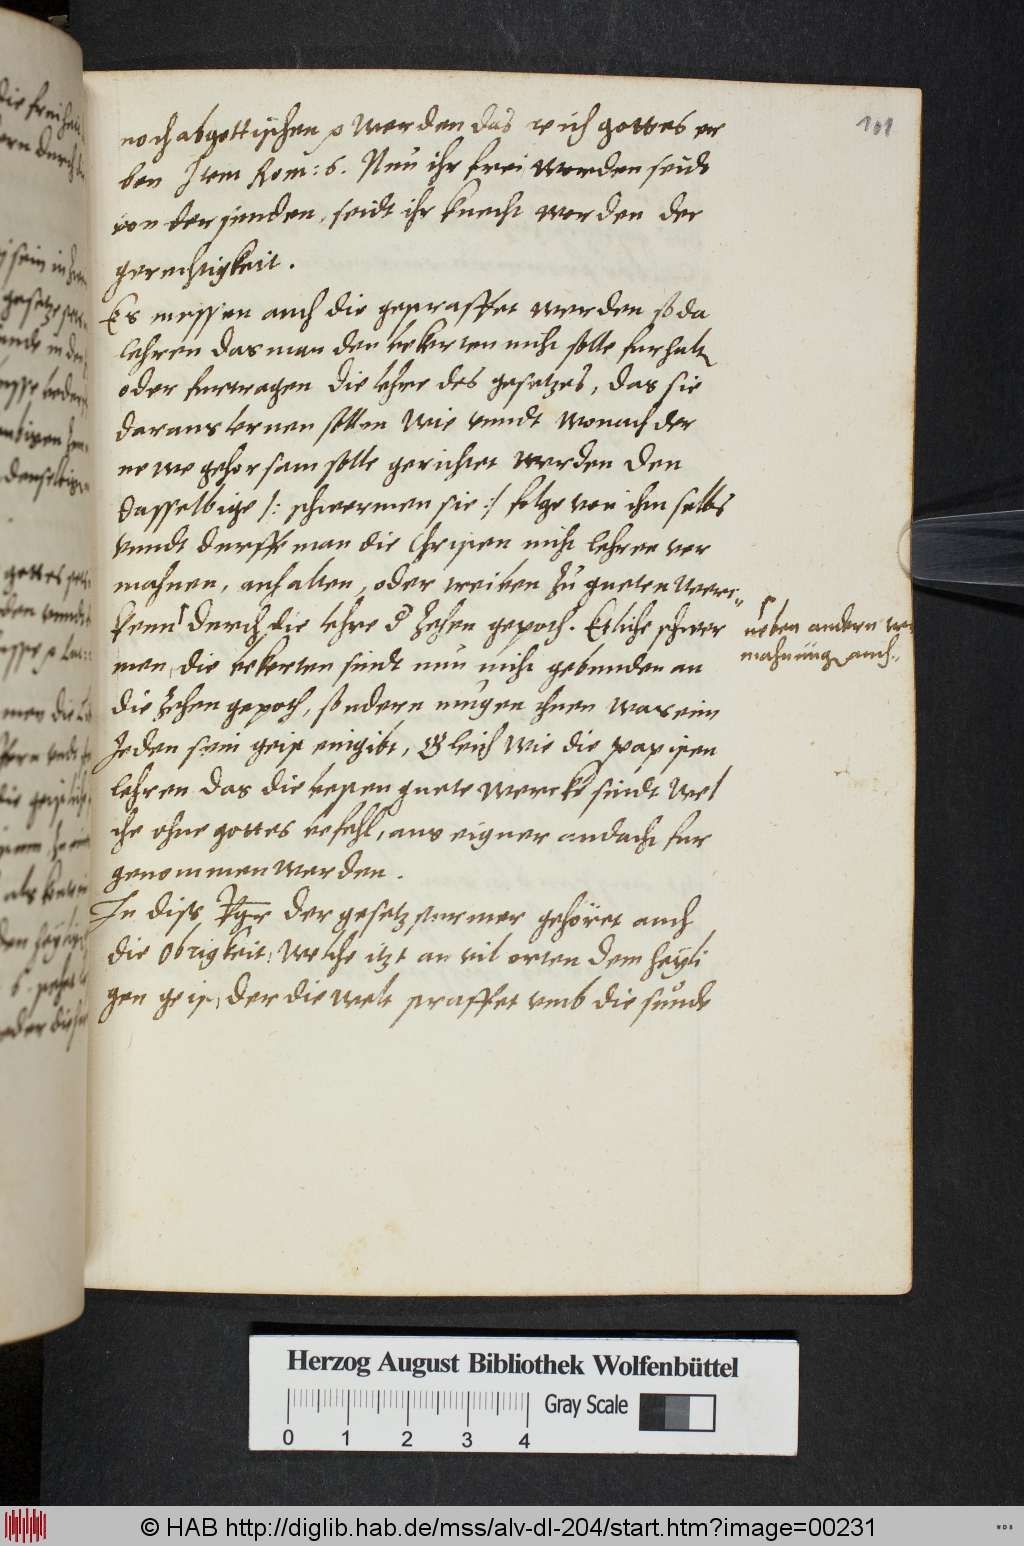 101
noch abgottischen ꝛc werden das reich gottes er
ben Item Rom: 6. Nun ihr frei worden seidt
von der sunden, seidt ihr knecht worden der
gerechtigkeit.
Es mussen auch die gestraffet werden so da
lehren das man den bekerten nicht solle furhalten
oder furtragen die lehre des gesetzes, das sie
daraus lernen sollen wie vnndt wonach der
newe gehorsam solle gerichtet werden den
dasselbige /: schwermen sie :/ folge von ihm selbs
vnndt durffe man die Christen nicht lehren ver
mahnen, anhalten, oder treiben zu gueten werc=
kenn durch die lehre d zehen gepoth. Etliche schwer
men, die bekerten sindt nun nicht gebunden an
die zehen gepoth, sondern mugen thuen was ein
Jeden sein geist eingibt, Gleich wie die papisten
lehren das die besten guete wercke sindt wel
che ohne gottes befehl, aus eigner andacht fur
genommen werden.
In diss der gesetz sturmer gehöret auch
die Obrigkeit, welche itzt an vil orten dem heyli
gen geist, der die welt straffet vmb die sunde
neben andern ver
mahnung auch
Herzog August Bibliothek Wolfenbüttel
Gray Scale
0 1 2 3 4
© HAB http://diglib.hab.de/mss/alv-dl-204/start.htm?image=00231